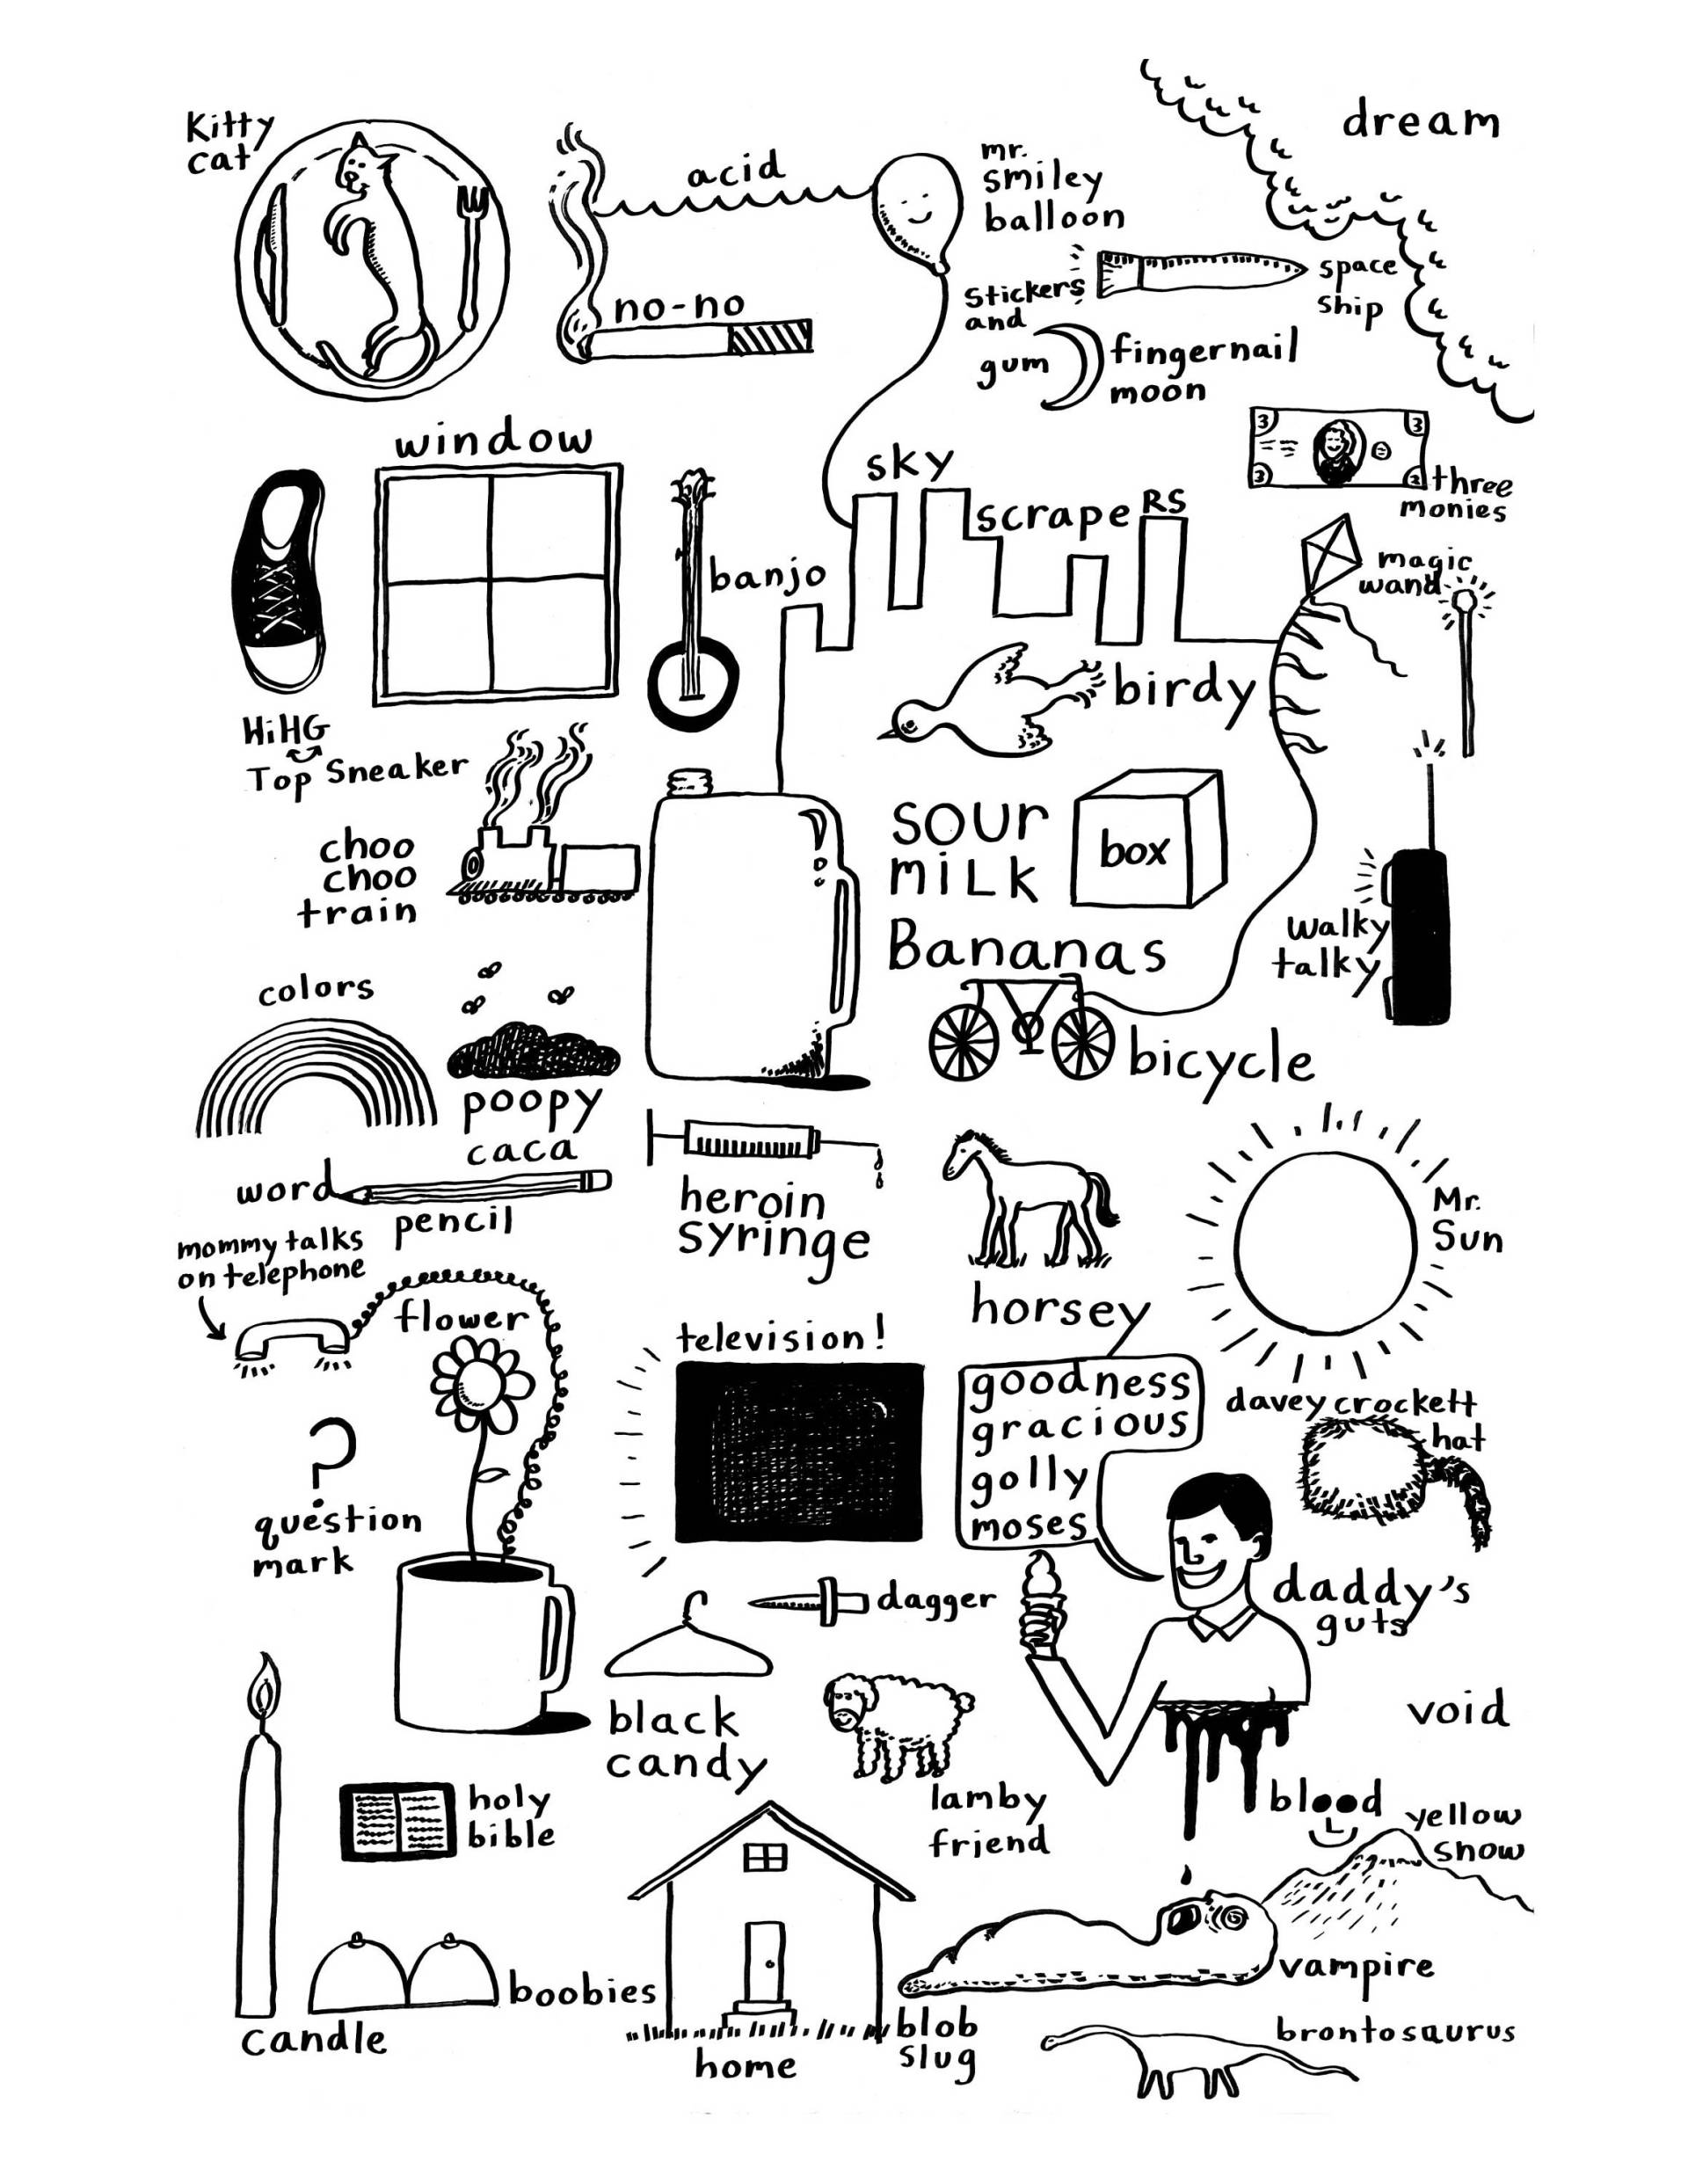 Kitty
cat
acid
no-no
mr.
smiley
balloon
dream
stickers
and
gum
space
ship
fingernail
moon
window
sky
scrapeRS
3
3
3
3
three
monies
banjo
magic
wand
birdy
HiHG
Top Sneaker
choo
choo
train
sour
milk
box
Bananas
walky
talky
colors
poopy
caca
bicycle
word
pencil
heroin
syringe
Mr.
Sun
mommy talks
on telephone
flower
horsey
television!
goodness
gracious
golly
moses
davey crockett
hat
?
question
mark
dagger
daddy's
guts
black
candy
void
holy
bible
lamby
friend
blood
yellow
snow
boobies
vampire
candle
home
blob
slug
brontosaurus